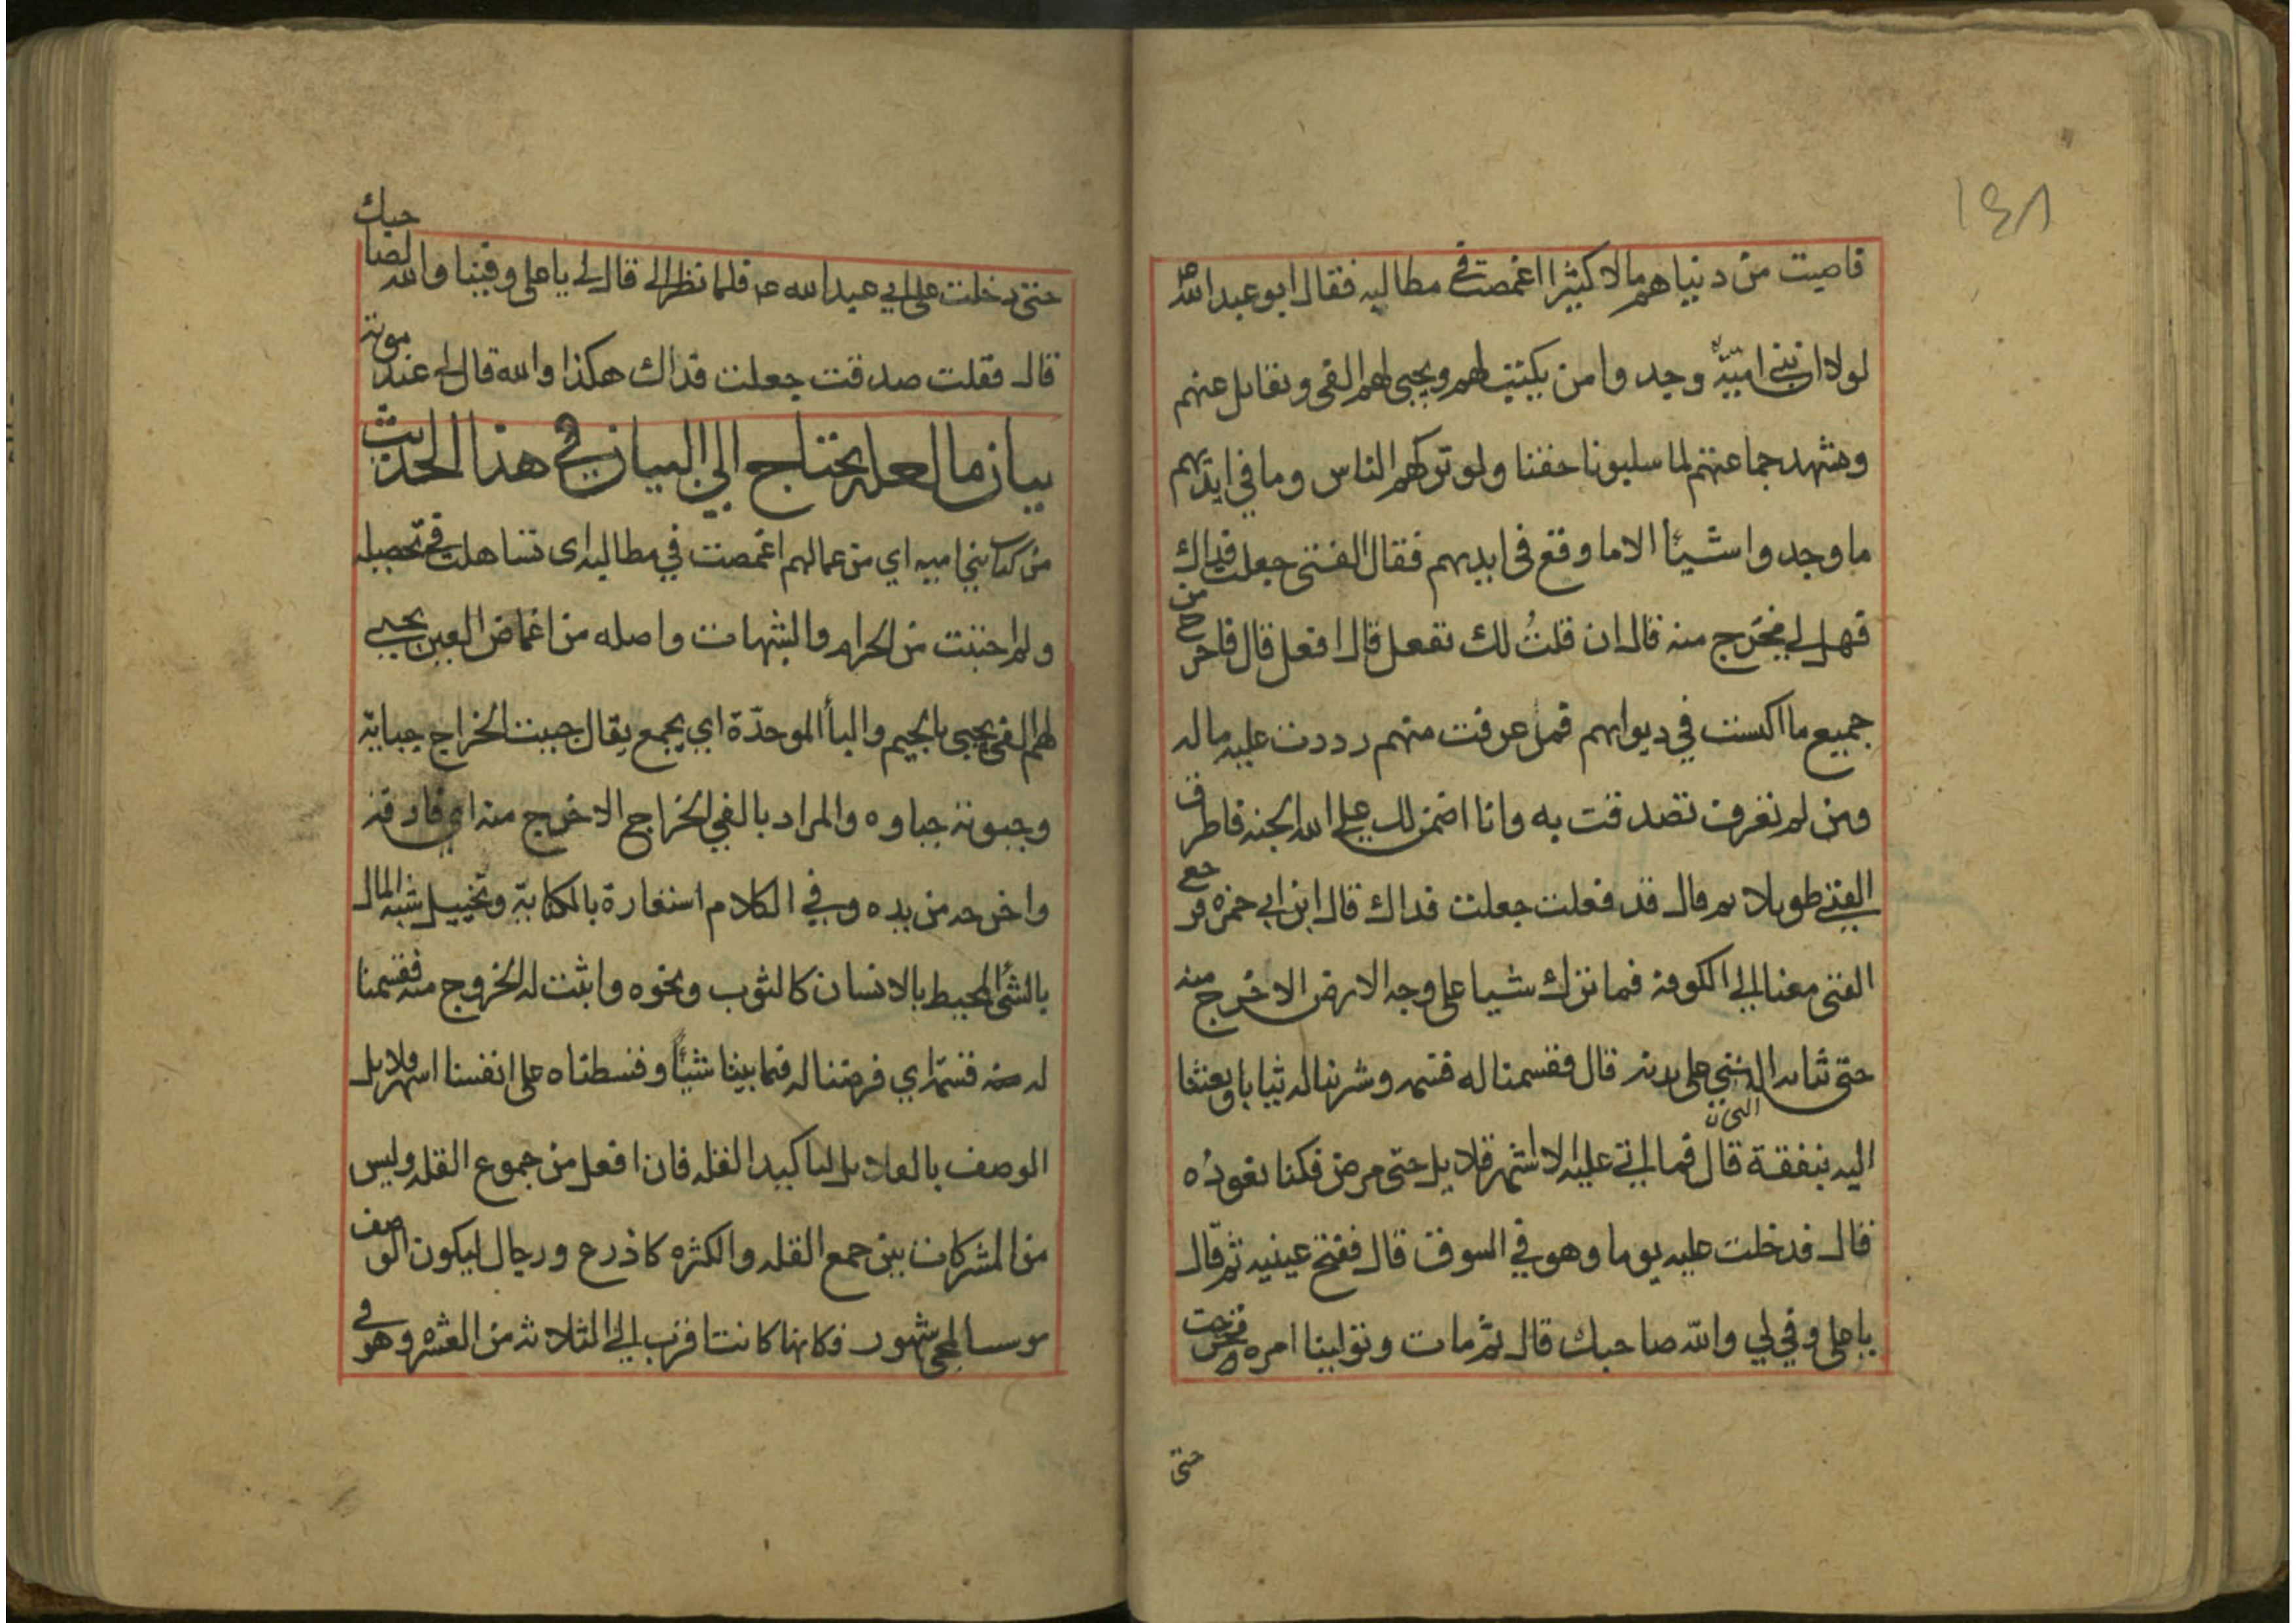 ١٤٨
فاصبت من دنياهم مالا كثيرا اغمضت في مطالبه فقال ابو عبد الله
لولا ان بني امية وجدوا من يكتب لهم ويجبي لهم الفي ويقاتل عنهم
ويشهد جماعتهم لما سلبونا حقنا ولو تركهم الناس وما في ايديهم
ما وجدوا شيئا الا ما وقع في ايديهم فقال الفتى جعلت فداك
فهل لي مخرج منه قال ان قلت لك تفعل قال افعل قال فاخرج من
جميع ما اكسبت في ديوانهم فمن عرفت منهم رددت عليه ماله
ومن لم تعرف تصدقت به وانا اضمن لك على الله الجنه فاطرق
الفتى طويلا ثم قال قد فعلت جعلت فداك قال ابن ابي حمزه فرجع
الفتى معنا الى الكوفه فما ترك شيا على وجه الارض الا خرج منه
حتى ثيابه التي على بدنه قال فقسمنا له قسمه وشرينا له ثيابا وبعثنا
اليه بنفقة قال فما اتي عليه الا اشهر قلايل حتى مرض فكنا نعوده
قال فدخلت عليه يوما وهو في السوق قال ففتح عينيه ثم قال
يا علي وفي لي والله صاحبك قال ثم مات وتولينا امره فخرجت
حتى
حتى دخلت على ابي عبد الله ع فلما نظر الي قال لي يا علي وفينا والله لصاحبك
قال فقلت صدقت جعلت فداك هكذا والله قال لي عند موته
بيان ما لعله يحتاج الى البيان في هذا الحديث
من كتاب بني اميه اي من عمالهم اغمضت في مطالبه اي تساهلت في تحصيله
ولم اجتنب من الحرام والشبهات واصله من اغماض العين يجبي
لهم الفي يجبى بالجيم والبأ الموحدة اي يجمع يقال جبيت الخراج جباية
وجبوته جباوه والمراد بالفي الخراج الا خرج منه اي فارقه
واخرجه من يده وفي الكلام استعارة بالمكناية وتخييل شبه المال
بالشئ المحيط بالانسان كالثوب ونحوه واثبت له الخروج منه فقسمنا
له قسمة اي فرضنا له فيما بيننا شيئا وقسطناه على انفسنا اشهر قلايل
الوصف بالقلايل لتاكيد القله فان افعل من جموع القله وليس
من المشتركات بين جمع القله والكثره كاذرع ورجال ليكون الوصف
لمجي شهور فكانها كانت اقرب الى الثلاثه من العشره وهو في